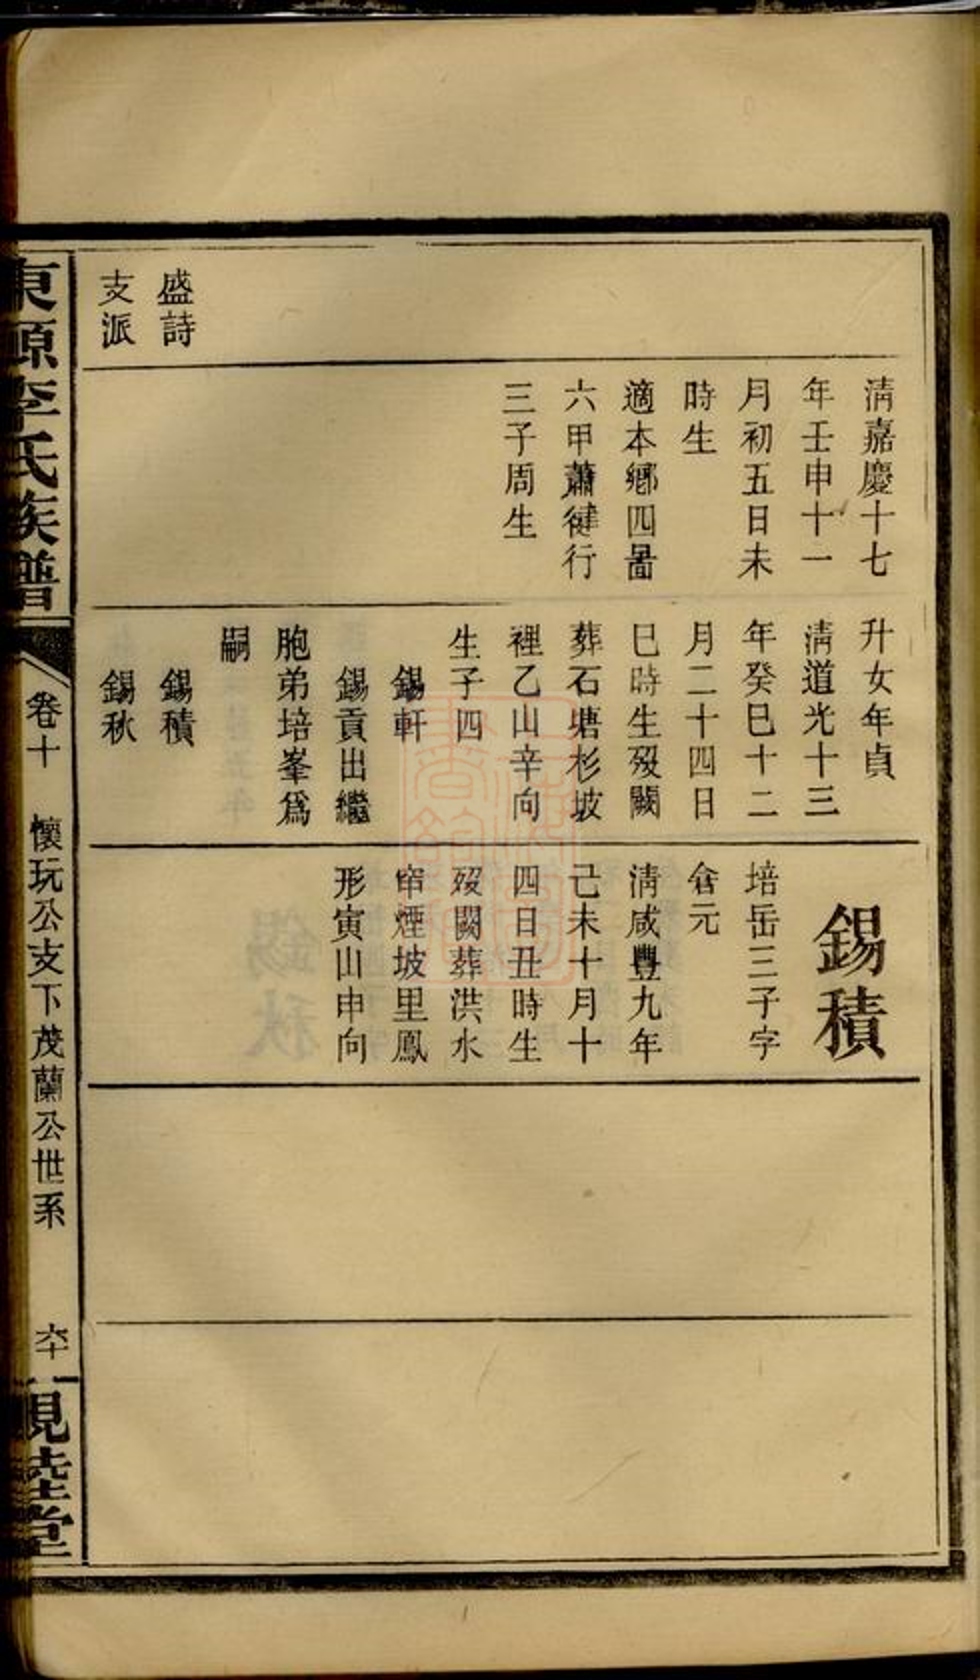 清嘉慶十七
年壬申十一
月初五日未
時生
適本鄉四啚
六甲蕭健行
三子周生
盛詩
支派
升女年貞
清道光十三
年癸巳十二
月二十四日
巳時生歿闕
葬石塘杉坡
裡乙山辛向
生子四
錫軒
錫貢出繼
胞弟培峯爲
嗣
錫積
錫秋
錫積
培岳三子字
會元
清咸豐九年
己未十月十
四日丑時生
歿闕葬洪水
窄煙坡里鳳
形寅山申向
東源李氏族譜
卷十
懷玩公支下茂蘭公世系
六十
親睦堂